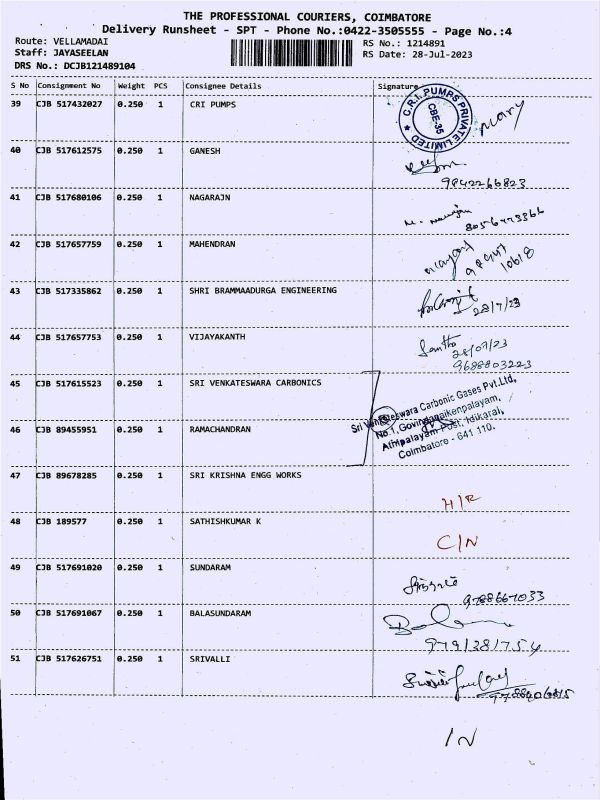 THE PROFESSIONAL COURIERS, COIMBATORE
Delivery Runsheet - SPT - Phone No.:0422-3505555 - Page No.:4
Route: VELLAMADAI RS No.: 1214891
Staff: JAYASEELAN RS Date: 28-Jul-2023
DRS No.: DCJB121489104
S No Consignment No Weight PCS Consignee Details Signature
39 CJB 517432027 0.250 1 CRI PUMPS
C.R.I. PUMPS PRIVATE LIMITED
CBE-35
mary
40 CJB 517612575 0.250 1 GANESH
9842266823
41 CJB 517680106 0.250 1 NAGARAJN
8056473366
42 CJB 517657759 0.250 1 MAHENDRAN
10618
43 CJB 517335862 0.250 1 SHRI BRAMMAADURGA ENGINEERING
28/7/23
44 CJB 517657753 0.250 1 VIJAYAKANTH
28/07/23
9688803223
45 CJB 517615523 0.250 1 SRI VENKATESWARA CARBONICS
Sri Venkateswara Carbonic Gases Pvt.Ltd,
No.1, Govindanaikenpalayam,
Athipalayam Post, Idikarai,
Coimbatore - 641 110.
46 CJB 89455951 0.250 1 RAMACHANDRAN
47 CJB 89678285 0.250 1 SRI KRISHNA ENGG WORKS
H/R
48 CJB 189577 0.250 1 SATHISHKUMAR K
C/N
49 CJB 517691020 0.250 1 SUNDARAM
9788667033
50 CJB 517691067 0.250 1 BALASUNDARAM
9791381754
51 CJB 517626751 0.250 1 SRIVALLI
IN